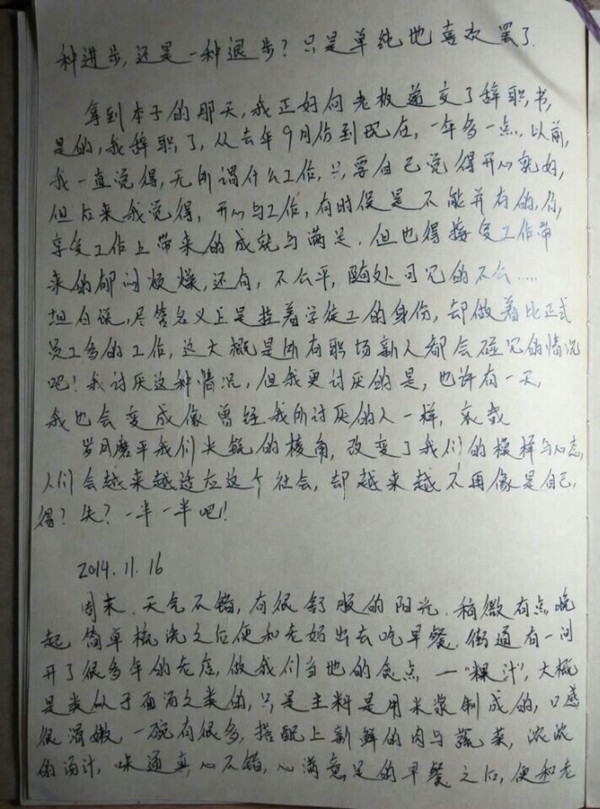 种进步,还是一种退步?只是单纯地喜欢罢了.
拿到本子的那天,我正好向老板递交了辞职书,
是的,我辞职了,从去年9月份到现在,一年多一点,以前,
我一直觉得,无所谓什么工作,只要自己觉得开心就好,
但后来我觉得,开心与工作,有时候是不能并存的,你,
享受工作上带来的成就与满足.但也得接受工作带
来的郁闷烦燥,还有,不公平,随处可见的不公……
坦白说,尽管名义上是挂着学徒工的身份,却做着比正式
员工多的工作,这大概是所有职场新人都会碰见的情况
吧!我讨厌这种情况,但我更讨厌的是,也许有一天,
我也会变成像曾经我所讨厌的人一样,
岁月磨平我们尖锐的棱角,改变了我们的模样与心态,
人们会越来越适应这个社会,却越来越不再像是自己,
得?失?一半一半吧!
2014.11.16
周末.天气不错,有很舒服的阳光.稍微有点晚
起.简单梳洗之后便和老妈出去吃早餐.街道有一间
开了很多年的老店,做我们当地的食点,一"粿汁",大概
是类似于面汤之类的,只是主料是用米浆制成的,口感
很滑嫩.一碗有很多,搭配上新鲜的肉与蔬菜,浓浓
的汤汁,味道真心不错,心满意足的早餐之后,便和老